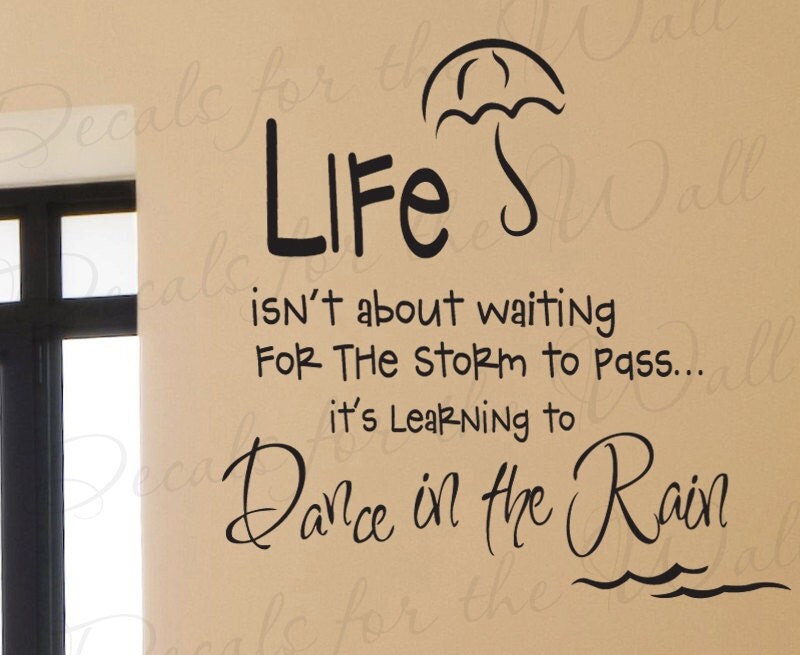 Decals for the Wall
LIFe
Decals for the Wall
isN't about waitiNg
FoR THe SToRm to pass...
it's LeaRNiNg to
Decals for the Wall
Dance in the Rain
Decals for the Wall